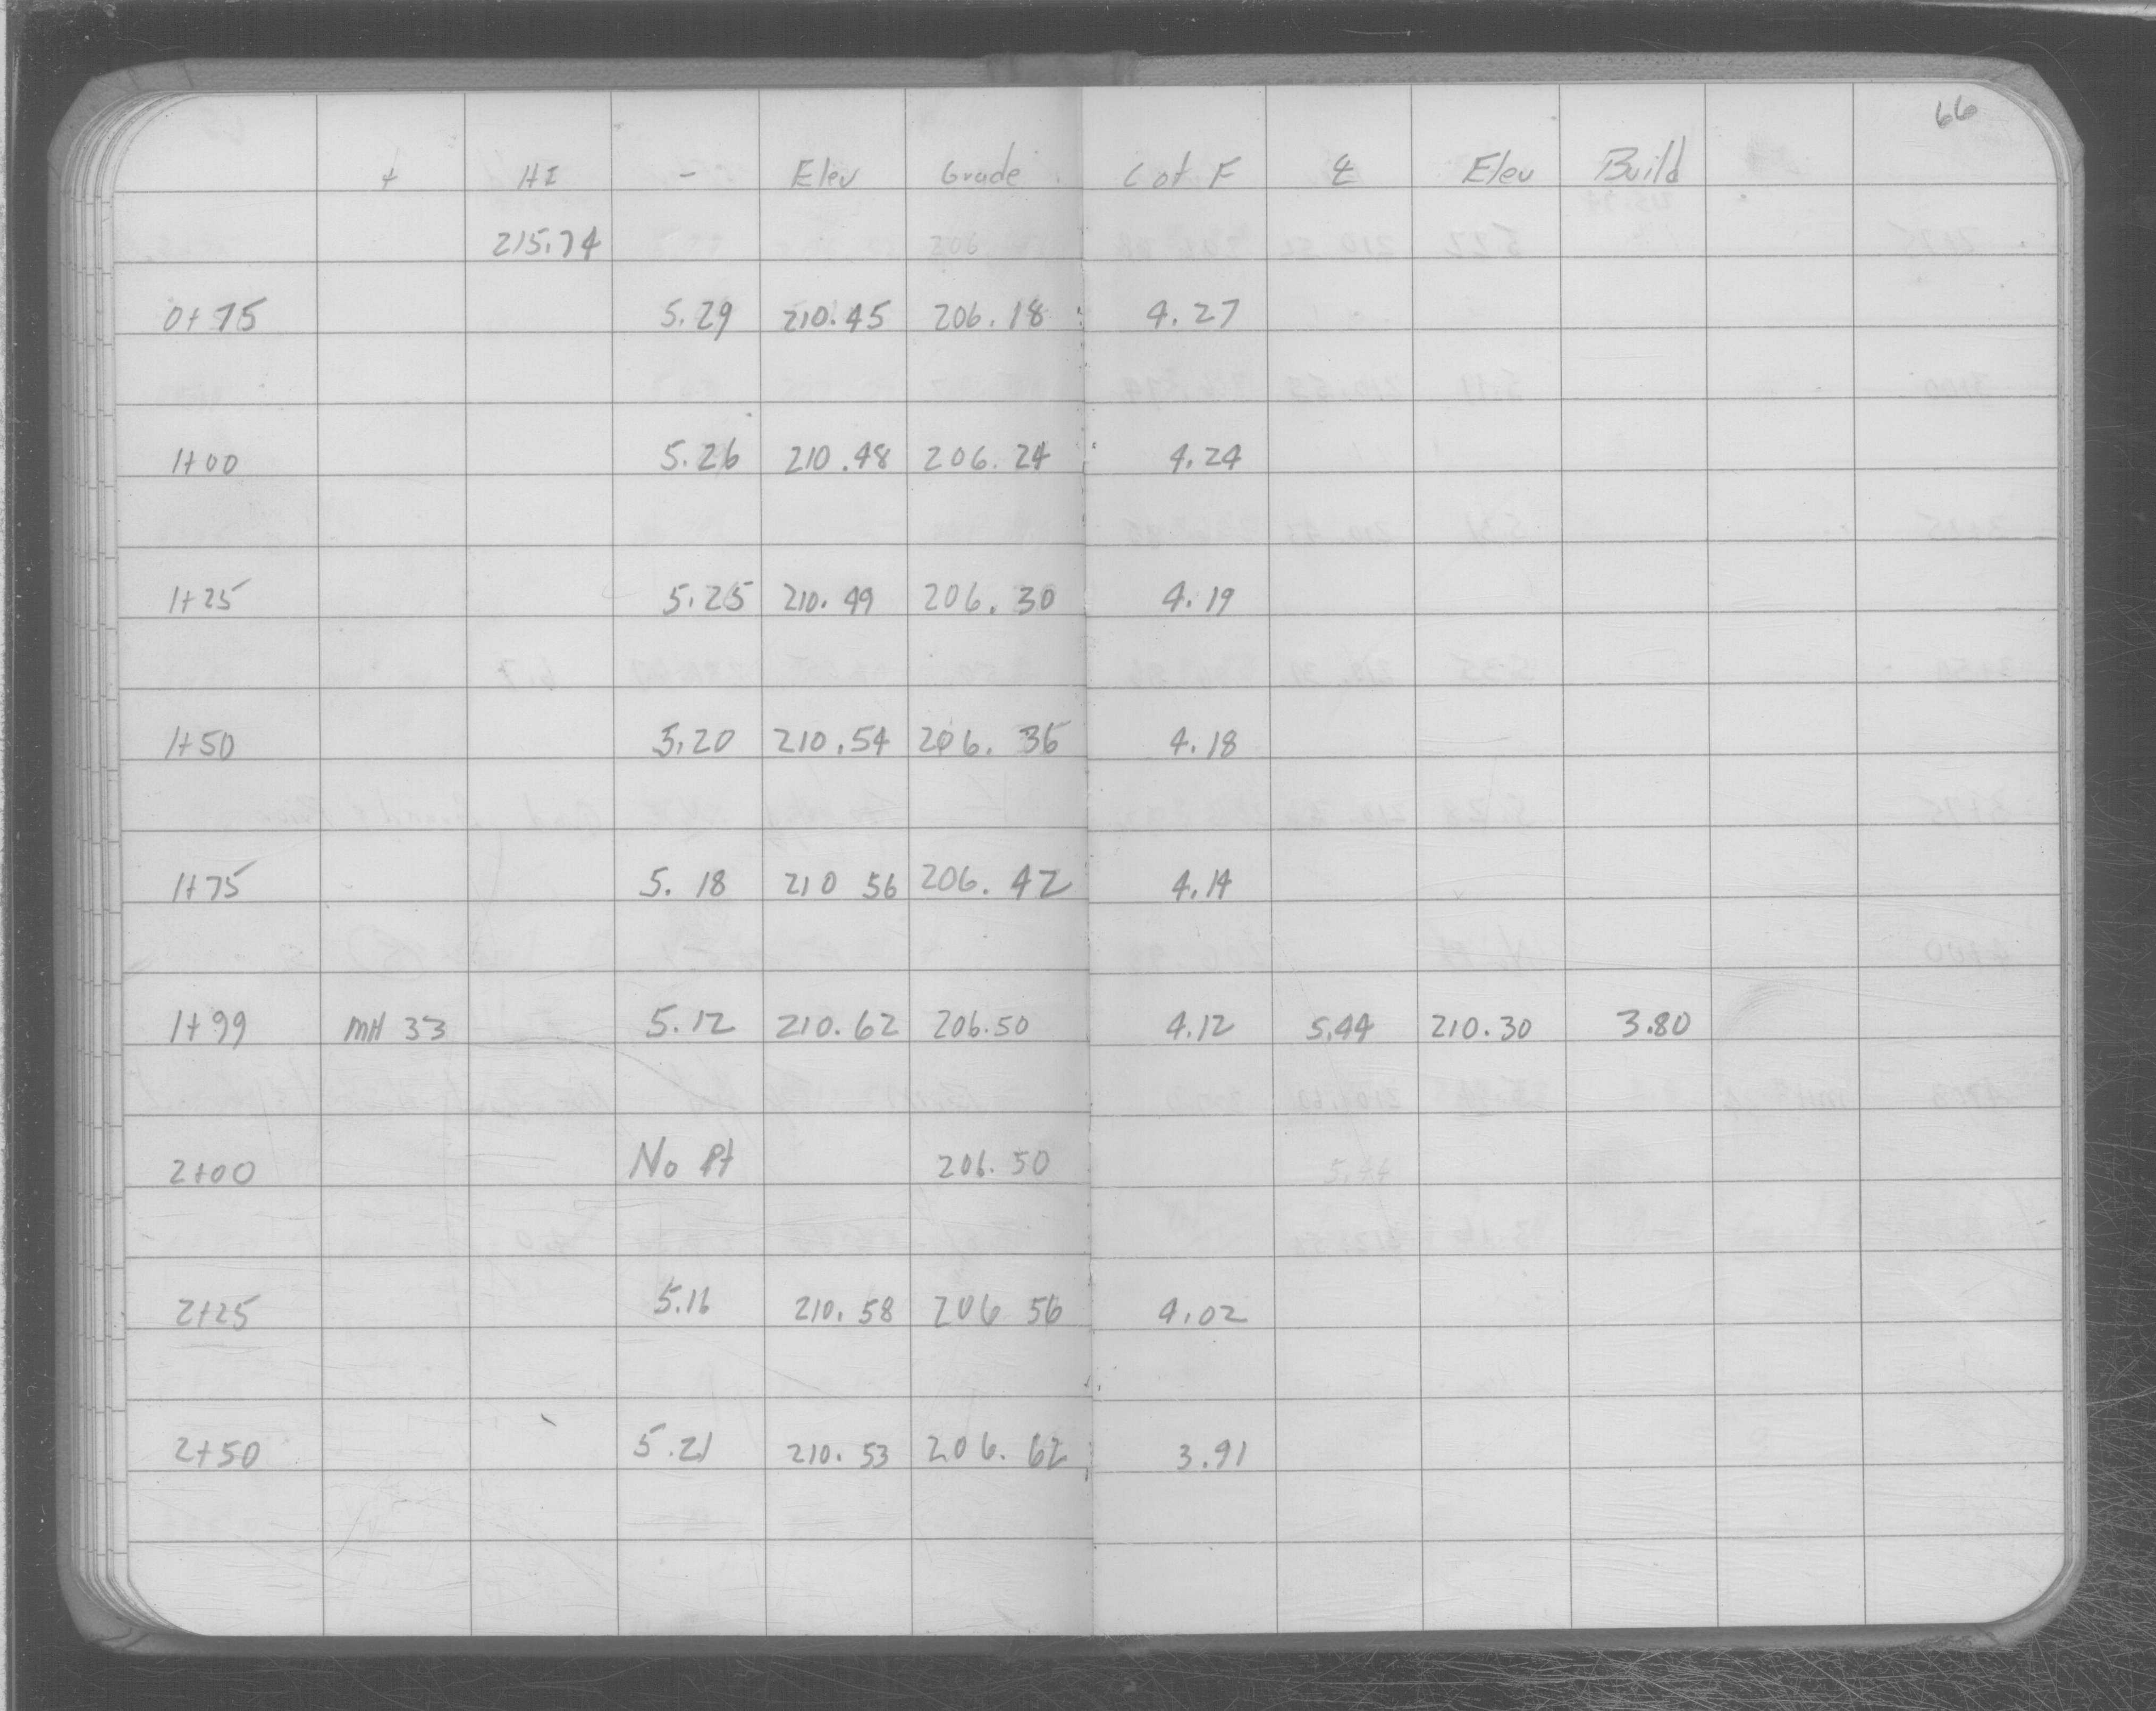 66
+ HI - Elev Grade C ot F ℄ Elev Build
215.74
0+75 5.29 210.45 206.18 4.27
1+00 5.26 210.48 206.24 4.24
1+25 5.25 210.49 206.30 4.19
1+50 5.20 210.54 206.36 4.18
1+75 5.18 210 56 206.42 4.14
1+99 MH 33 5.12 210.62 206.50 4.12 5.44 210.30 3.80
2+00 No Pt 206.50
5.44
2+25 5.16 210.58 206 56 4.02
2+50 5.21 210.53 206.62 3.91